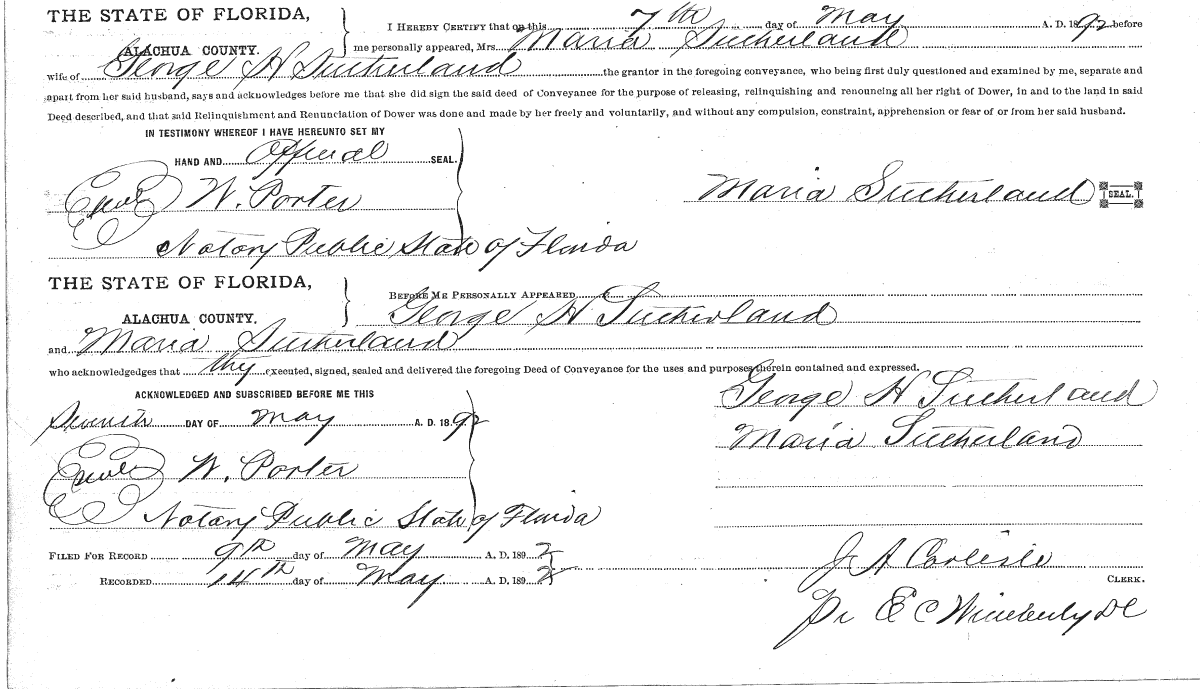 THE STATE OF FLORIDA,
ALACHUA COUNTY.
I HEREBY CERTIFY that on this 7th day of May A. D. 1892 before
me personally appeared, Mrs. Maria Sutherland
wife of George H Sutherland the grantor in the foregoing conveyance, who being first duly questioned and examined by me, separate and
apart from her said husband, says and acknowledges before me that she did sign the said deed of Conveyance for the purpose of releasing, relinquishing and renouncing all her right of Dower, in and to the land in said
Deed described, and that said Relinquishment and Renunciation of Dower was done and made by her freely and voluntarily, and without any compulsion, constraint, apprehension or fear of or from her said husband.
IN TESTIMONY WHEREOF I HAVE HEREUNTO SET MY
HAND AND Official SEAL.
W. Porter
Maria Sutherland SEAL.
Notary Public State of Florida
THE STATE OF FLORIDA,
ALACHUA COUNTY.
BEFORE ME PERSONALLY APPEARED
George H Sutherland
and Maria Sutherland
who acknowledgedges that they executed, signed, sealed and delivered the foregoing Deed of Conveyance for the uses and purposes therein contained and expressed.
ACKNOWLEDGED AND SUBSCRIBED BEFORE ME THIS
Seventh DAY OF May A. D. 1892
George H Sutherland
Maria Sutherland
W. Porter
Notary Public State of Florida
FILED FOR RECORD 9th day of May A. D. 1892
RECORDED 14th day of May A. D. 1892
J A Carlisle
CLERK.
Pr E C Wimberly DC